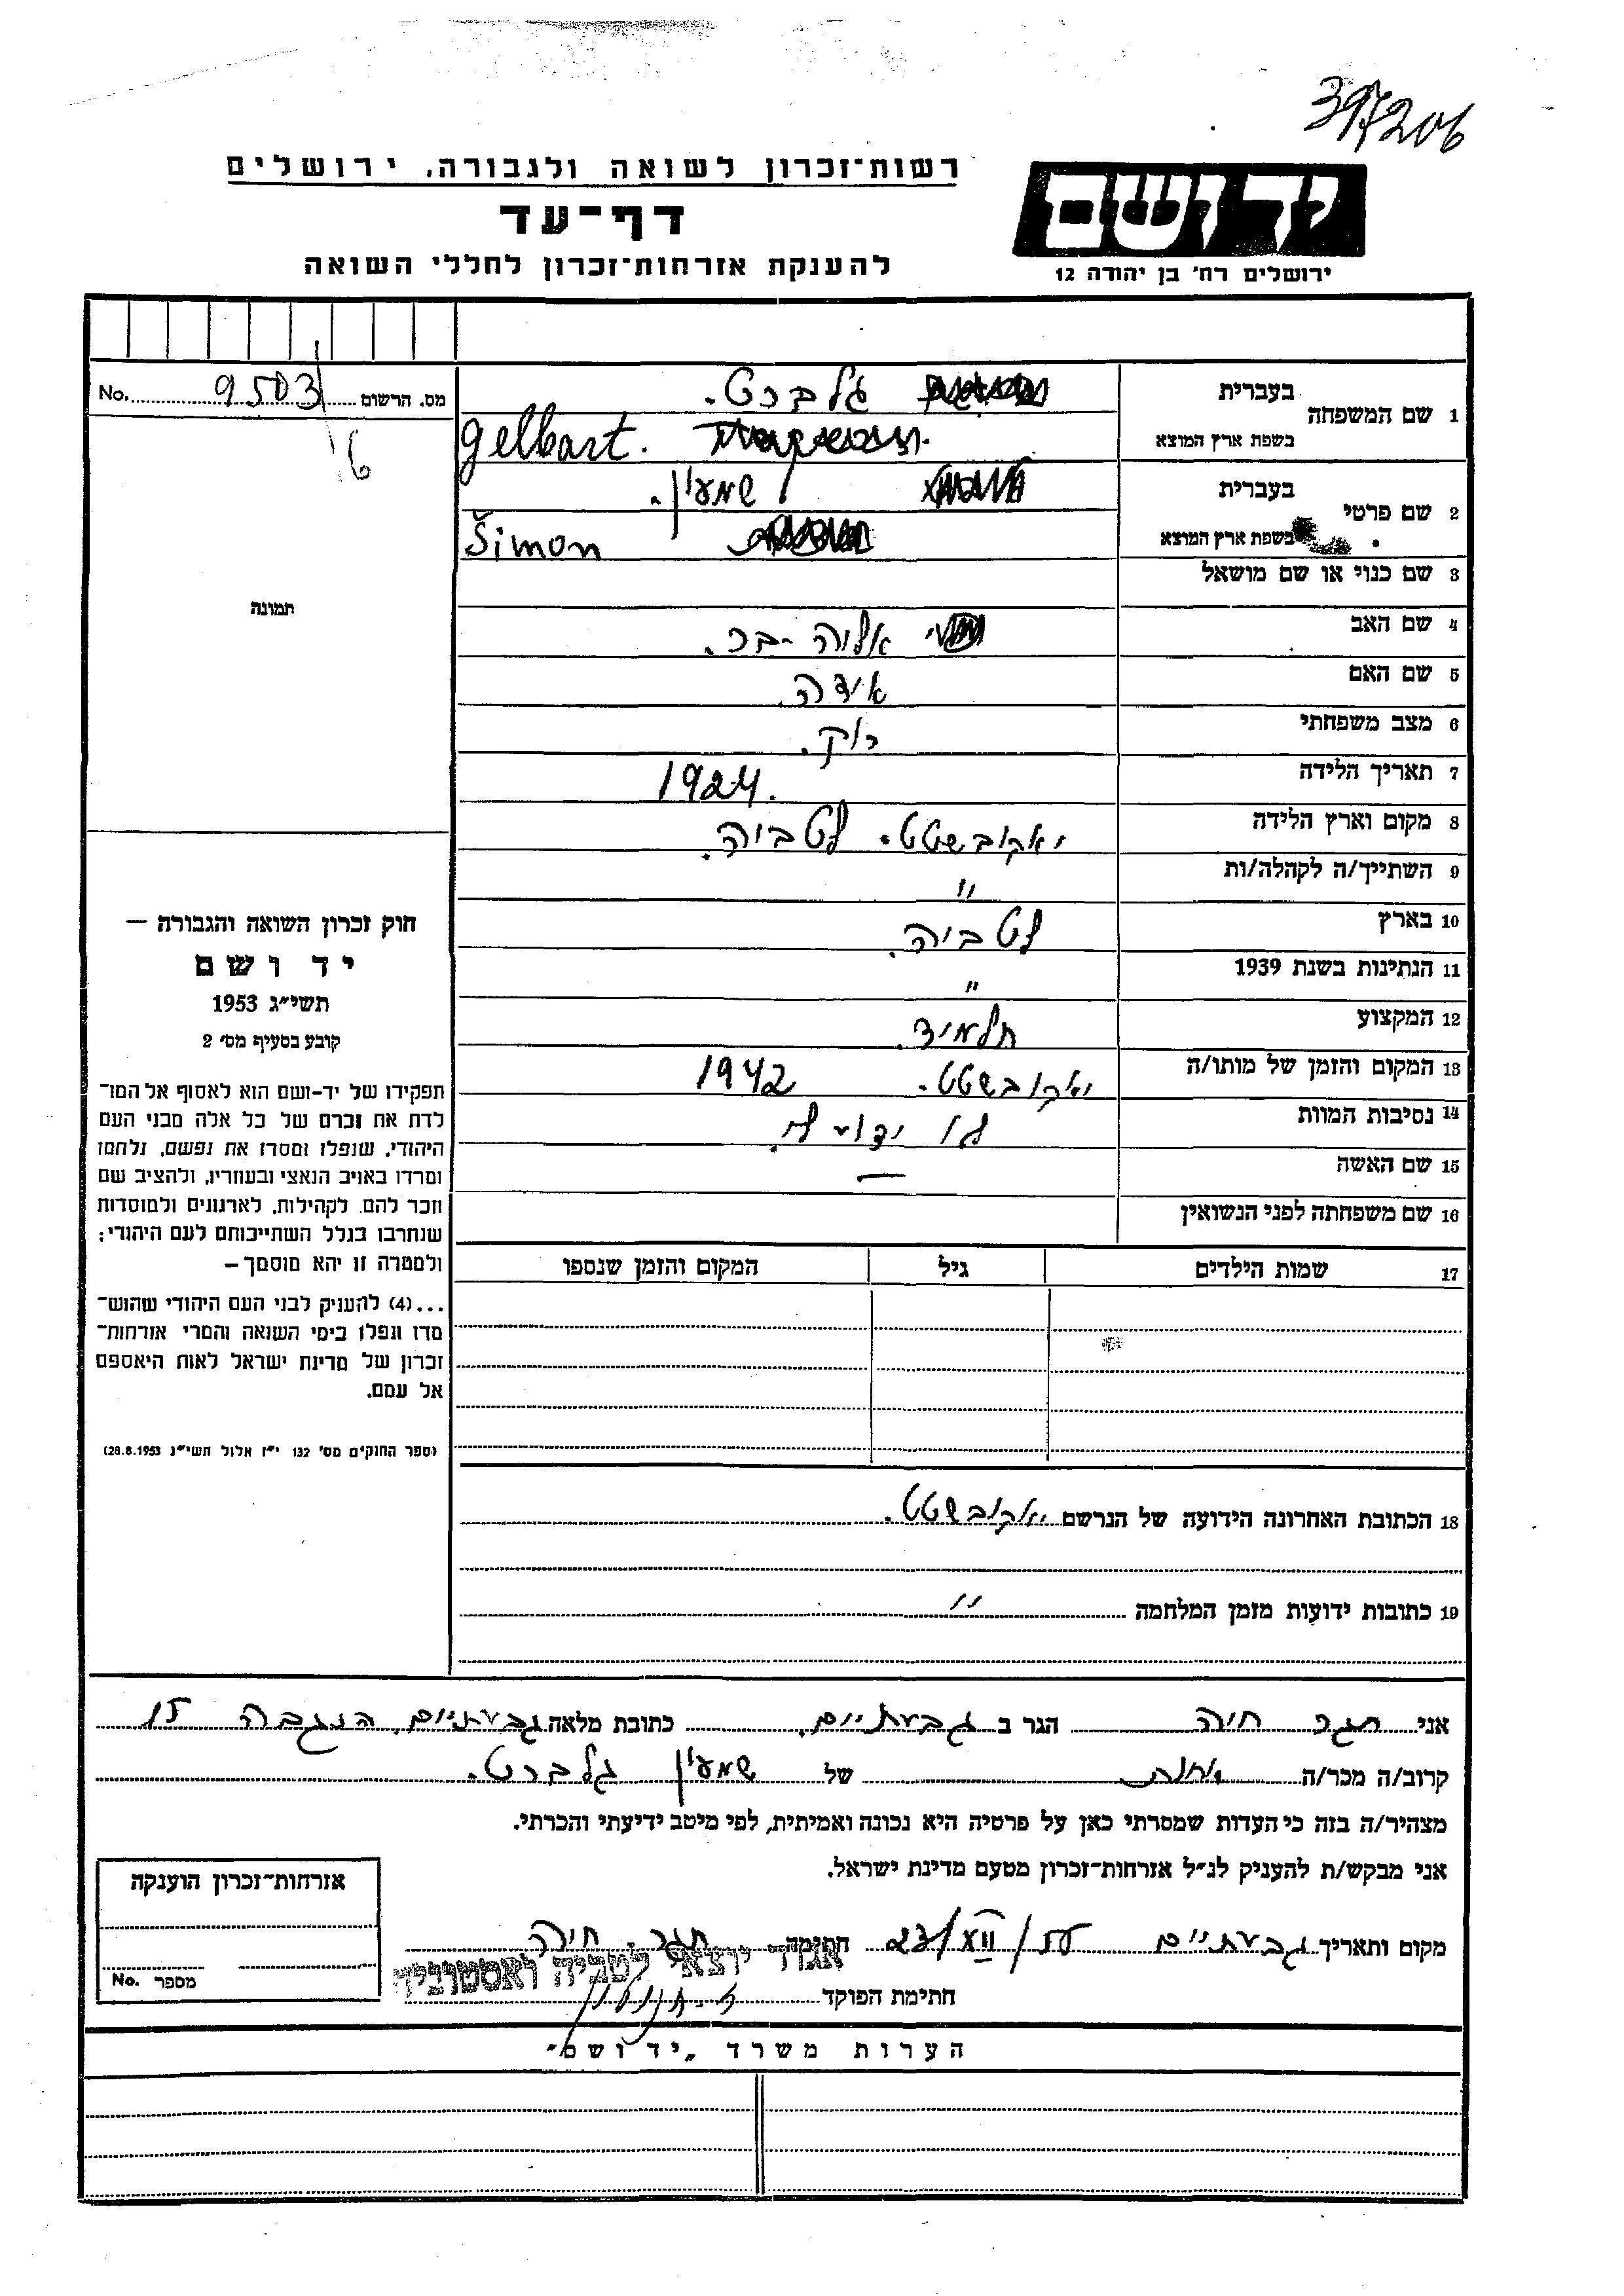 397206
יד ושם
ירושלים רח' בן יהודה 12
רשות־זכרון לשואה ולגבורה, ירושלים
דף־עד
להענקת אזרחות־זכרון לחללי השואה
מס. הרשום 9503 No.
16
תמונה
1 שם המשפחה בעברית גלברט.
בשפת ארץ המוצא Gelbart.
2 שם פרטי בעברית שמעון.
בשפת ארץ המוצא Šimon
3 שם כנוי או שם מושאל
4 שם האב
5 שם האם אידה
6 מצב משפחתי רוק.
7 תאריך הלידה 1924.
8 מקום וארץ הלידה יאקובשטט. לטביה.
9 השתייך/ה לקהלה/ות "
10 בארץ לטביה.
11 הנתינות בשנת 1939 "
12 המקצוע תלמיד.
13 המקום והזמן של מותו/ה יאקובשטט. 1942
14 נסיבות המוות לא ידוע
15 שם האשה —
16 שם משפחתה לפני הנשואין
17 שמות הילדים גיל המקום והזמן שנספו
חוק זכרון השואה והגבורה —
יד ושם
תשי"ג 1953
קובע בסעיף מס' 2
תפקידו של יד־ושם הוא לאסוף אל המו־
לדת את זכרם של כל אלה מבני העם
היהודי, שנפלו ומסרו את נפשם, נלחמו
ומרדו באויב הנאצי ובעוזריו, ולהציב שם
וזכר להם, לקהילות, לארגונים ולמוסדות
שנחרבו בגלל השתייכותם לעם היהודי;
ולמטרה זו יהא מוסמך —
...(4) להעניק לבני העם היהודי שהוש־
מדו ונפלו בימי השואה והמרי אזרחות־
זכרון של מדינת ישראל לאות היאספם
אל עמם.
(ספר החוקים מס' 132 י"ז אלול תשי"ג 28.8.1953)
18 הכתובת האחרונה הידועה של הנרשם יאקובשטט.
19 כתובות ידועות מזמן המלחמה "
אני חגר חיה הגר ב גבעתיים. כתובת מלאה גבעתיים, הנגבה 15
קרוב/ה מכר/ה אחות של שמעון גלברט.
מצהיר/ה בזה כי העדות שמסרתי כאן על פרטיה היא נכונה ואמיתית, לפי מיטב ידיעתי והכרתי.
אני מבקש/ת להעניק לנ"ל אזרחות־זכרון מטעם מדינת ישראל.
מקום ותאריך גבעתיים 23/XII/55 חתימה חגר חיה
אגוד יוצאי לטביה ואסטוניה
חתימת הפוקד
אזרחות־זכרון הוענקה
מספר No.
הערות משרד „יד ושם"